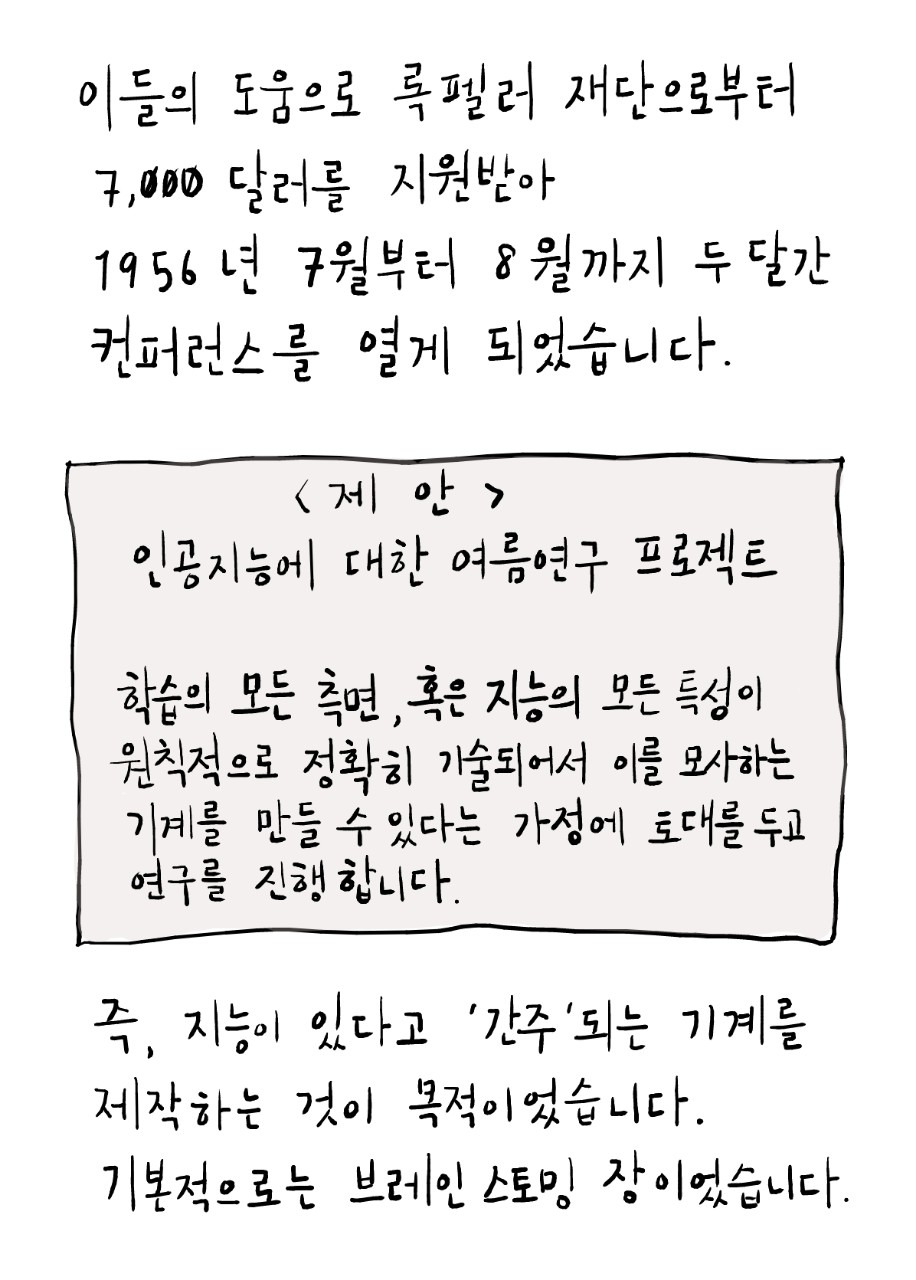 이들의 도움으로 록펠러 재단으로부터
7,000 달러를 지원받아
1956년 7월부터 8월까지 두 달간
컨퍼런스를 열게 되었습니다.
<제 안>
인공지능에 대한 여름연구 프로젝트
학습의 모든 측면, 혹은 지능의 모든 특성이
원칙적으로 정확히 기술되어서 이를 모사하는
기계를 만들 수 있다는 가정에 토대를 두고
연구를 진행합니다.
즉, 지능이 있다고 '간주'되는 기계를
제작하는 것이 목적이었습니다.
기본적으로는 브레인스토밍 장이었습니다.